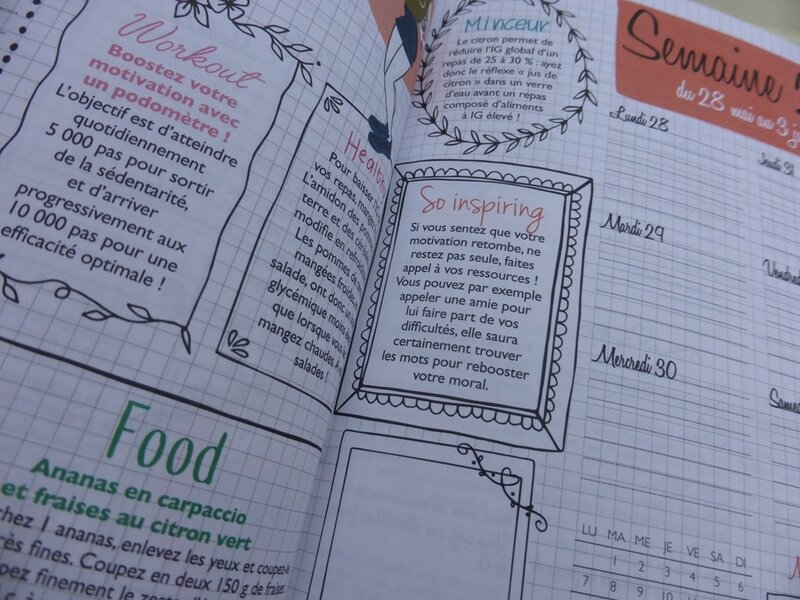 Workout
Boostez votre
motivation avec
un podomètre !
L'objectif est d'atteindre
quotidiennement
5 000 pas pour sortir
de la sédentarité,
et d'arriver
progressivement aux
10 000 pas pour une
efficacité optimale !
Pour baisser
vos repas,
L'amidon des
terre et des
modifie en
Les pommes de
mangées froides
salade, ont donc un
glycémique moins
que lorsque vous
mangez chaudes.
salades !
Food
Ananas en carpaccio
et fraises au citron vert
1 ananas, enlevez les yeux et
fines. Coupez en deux 150 g de fraises
finement le
Minceur
Le citron permet de
réduire l'IG global d'un
repas de 25 à 30 % : ayez
donc le réflexe « jus de
citron » dans un verre
d'eau avant un repas
composé d'aliments
à IG élevé !
So inspiring
Si vous sentez que votre
motivation retombe, ne
restez pas seule, faites
appel à vos ressources !
Vous pouvez par exemple
appeler une amie pour
lui faire part de vos
difficultés, elle saura
certainement trouver
les mots pour rebooster
votre moral.
Semaine
du 28 mai au 3
Lundi 28
Jeudi 31
Mardi 29
Mercredi 30
LU MA ME JE VE SA DI
1 2 3 4 5 6
7 8 9 10